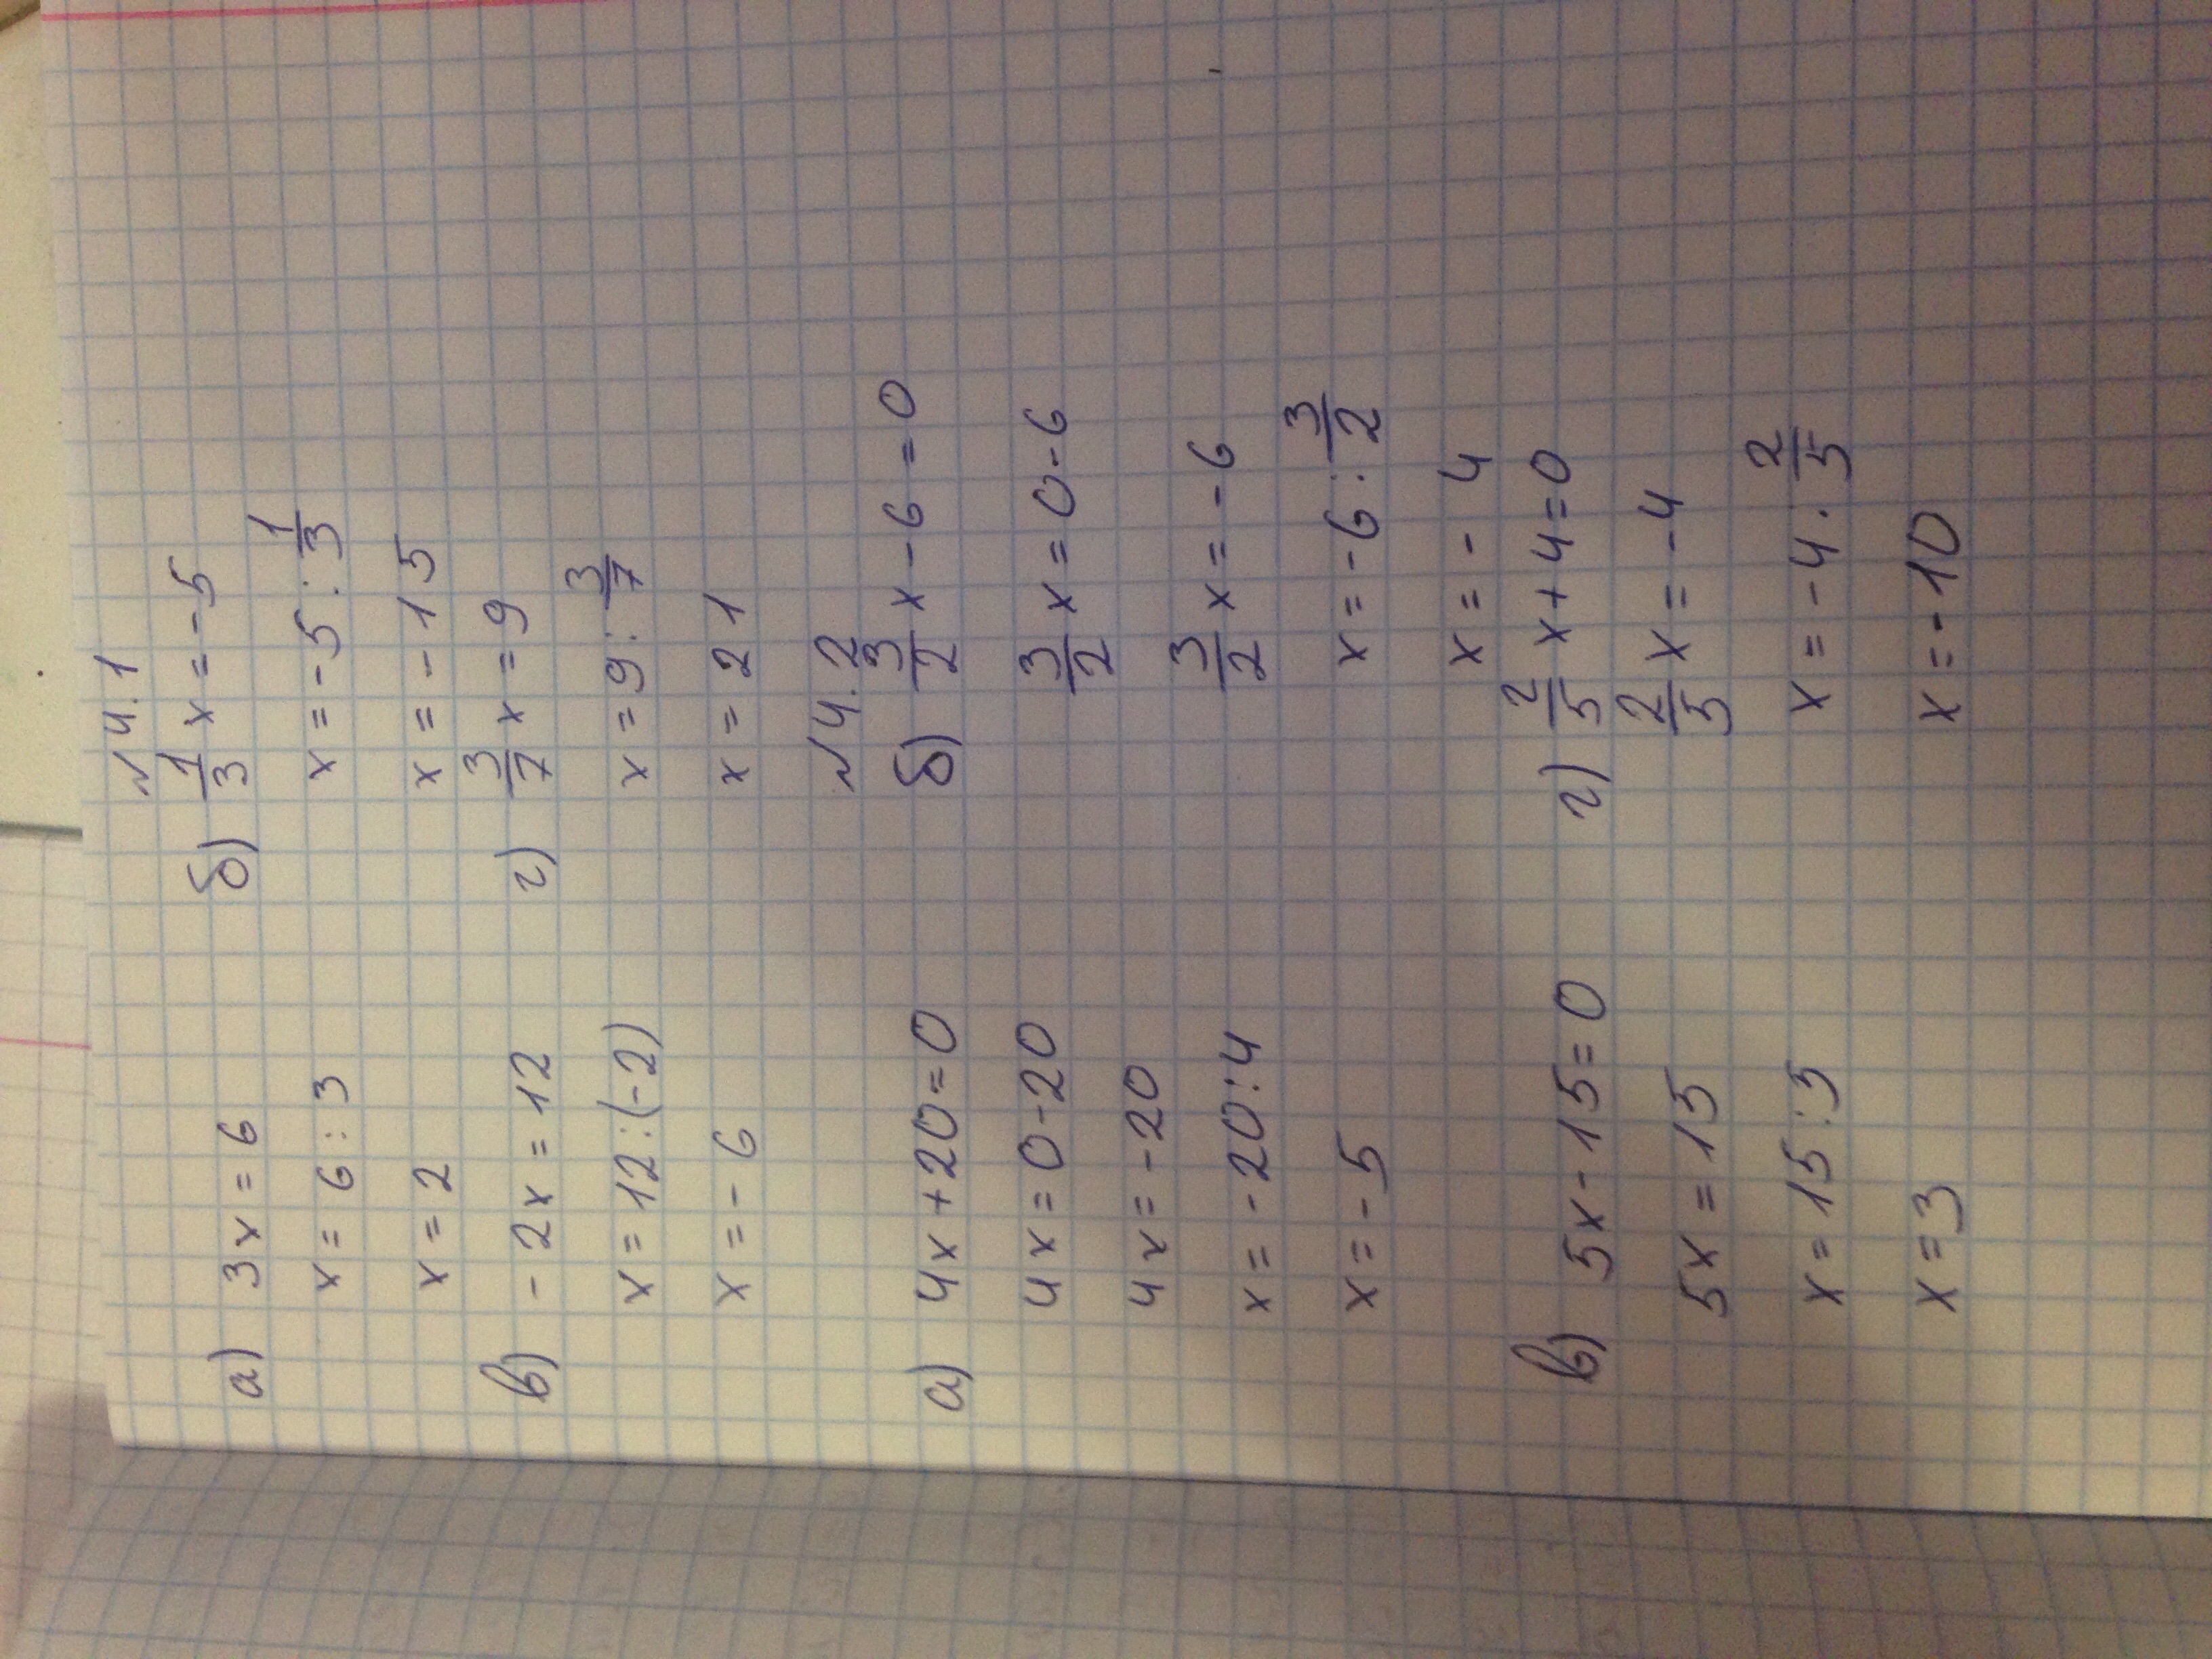 №4.1
а) 3x = 6
x = 6 : 3
x = 2
б) 1/3 x = -5
x = -5 : 1/3
x = -15
в) -2x = 12
x = 12 : (-2)
x = -6
г) 3/7 x = 9
x = 9 : 3/7
x = 21
№4.2
а) 4x + 20 = 0
4x = 0 - 20
4x = -20
x = -20 : 4
x = -5
б) 3/2 x - 6 = 0
3/2 x = 0 - 6
3/2 x = -6
x = -6 : 3/2
x = -4
в) 5x - 15 = 0
5x = 15
x = 15 : 5
x = 3
г) 2/5 x + 4 = 0
2/5 x = -4
x = -4 · 2/5
x = -10